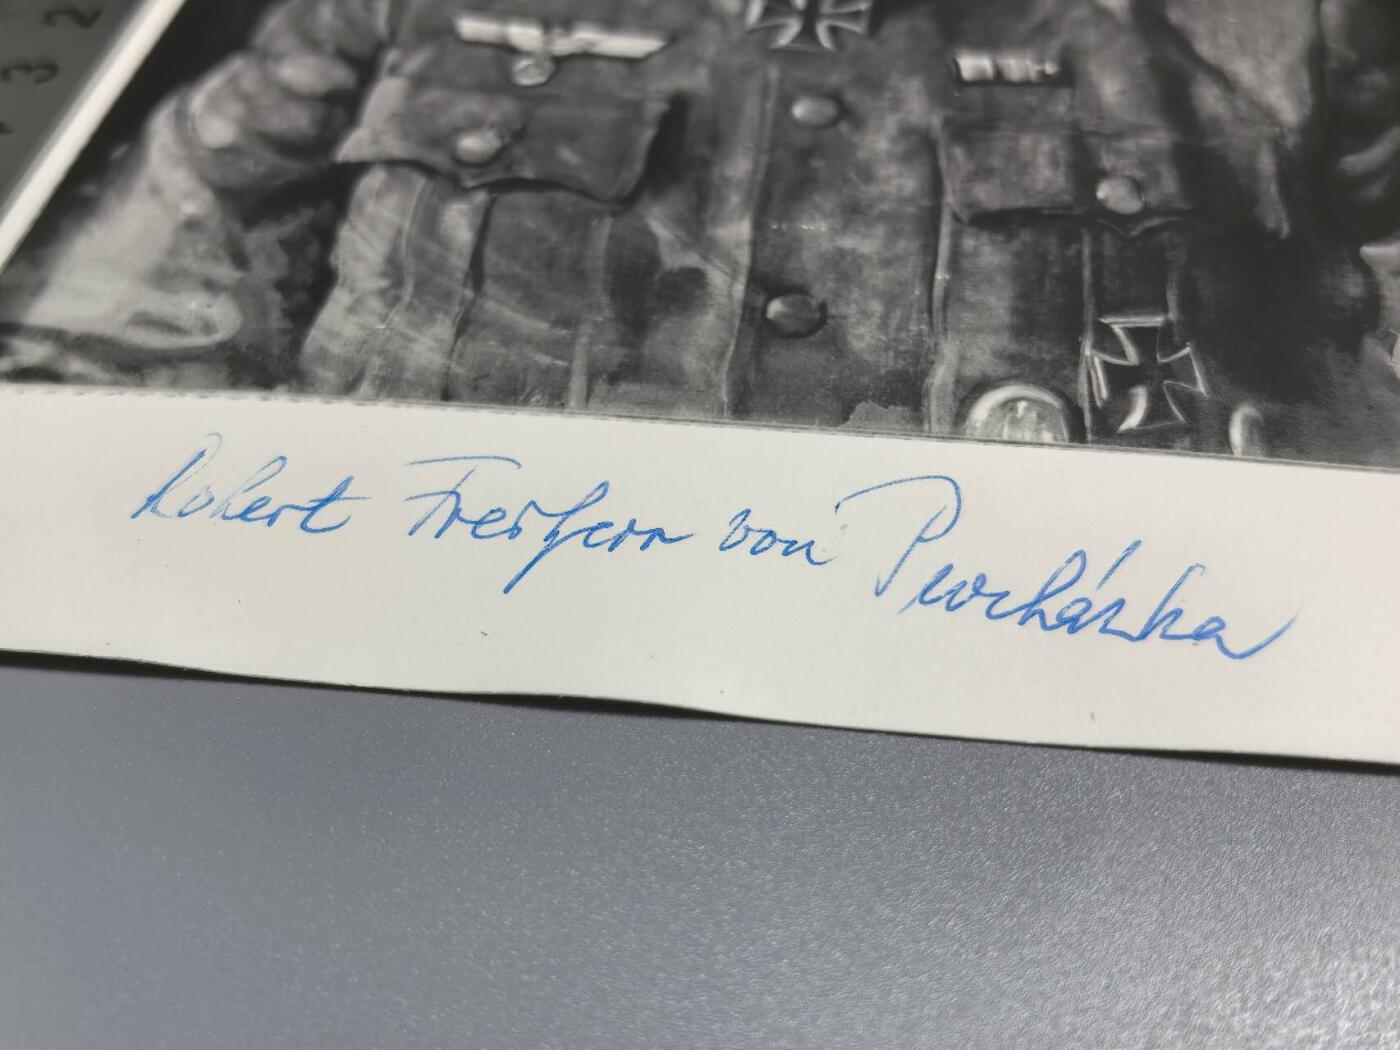 2
3
Robert Freiherr von Procházka